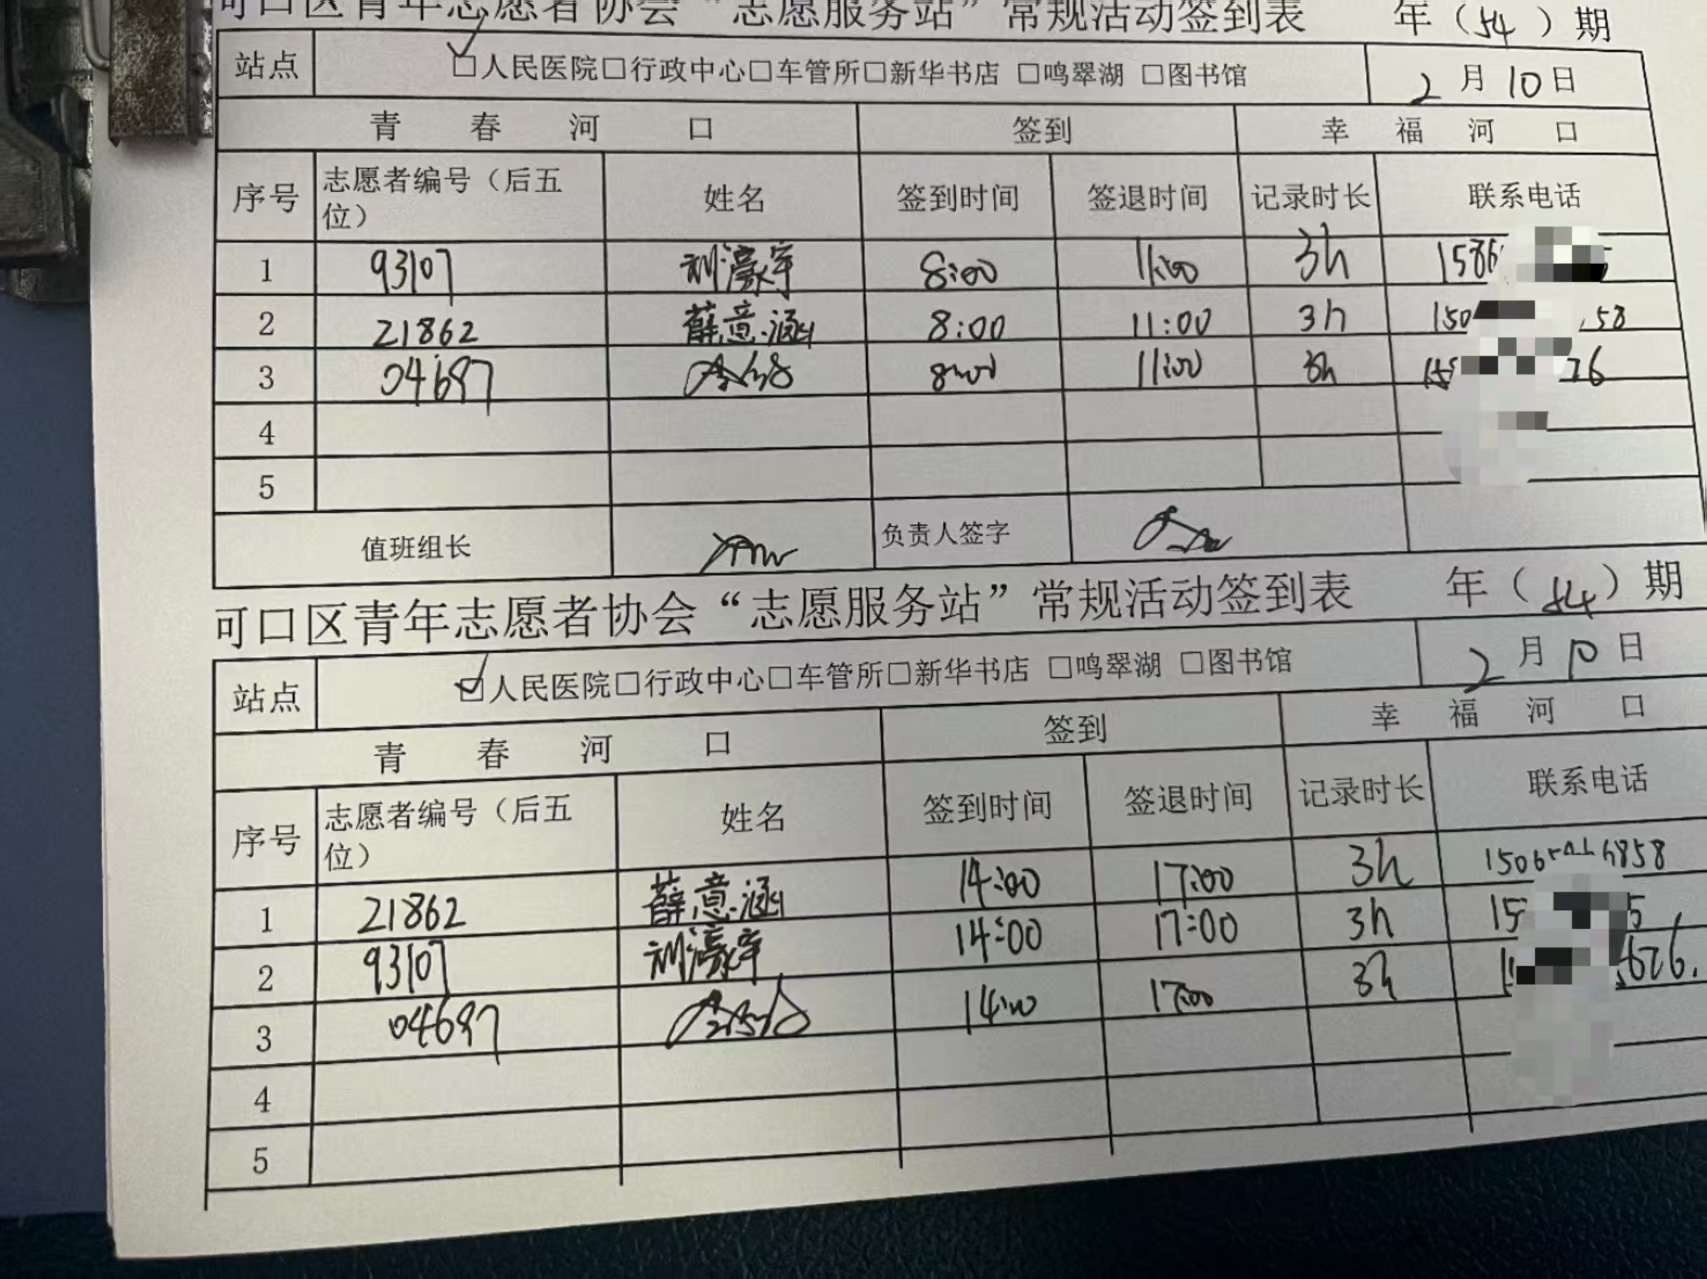 可口区青年志愿者协会“志愿服务站”常规活动签到表 年（54）期
站点 ☑人民医院□行政中心□车管所□新华书店 □鸣翠湖 □图书馆 2月10日
青春河口 签到 幸福河口
序号 志愿者编号（后五位） 姓名 签到时间 签退时间 记录时长 联系电话
1 93107 刘濠宇 8:00 11:00 3h 1586
2 21862 薛意涵 8:00 11:00 3h 150 58
3 04697 8:00 11:00 3h 155 26
4
5
值班组长 负责人签字
可口区青年志愿者协会“志愿服务站”常规活动签到表 年（54）期
站点 ☑人民医院□行政中心□车管所□新华书店 □鸣翠湖 □图书馆 2月10日
青春河口 签到 幸福河口
序号 志愿者编号（后五位） 姓名 签到时间 签退时间 记录时长 联系电话
1 21862 薛意涵 14:00 17:00 3h
2 93107 刘濠宇 14:00 17:00 3h 15 5
3 04697 14:00 17:00 3h 626
4
5